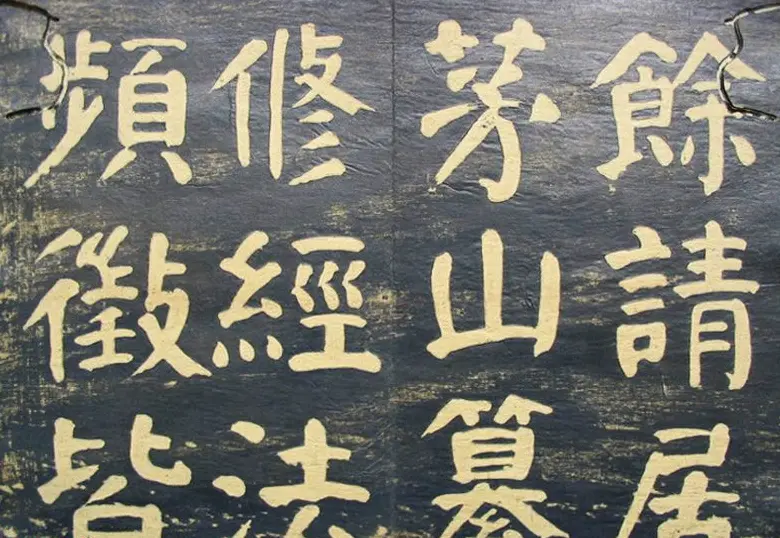 餘請居
茅山纂
修經法
頻徵皆